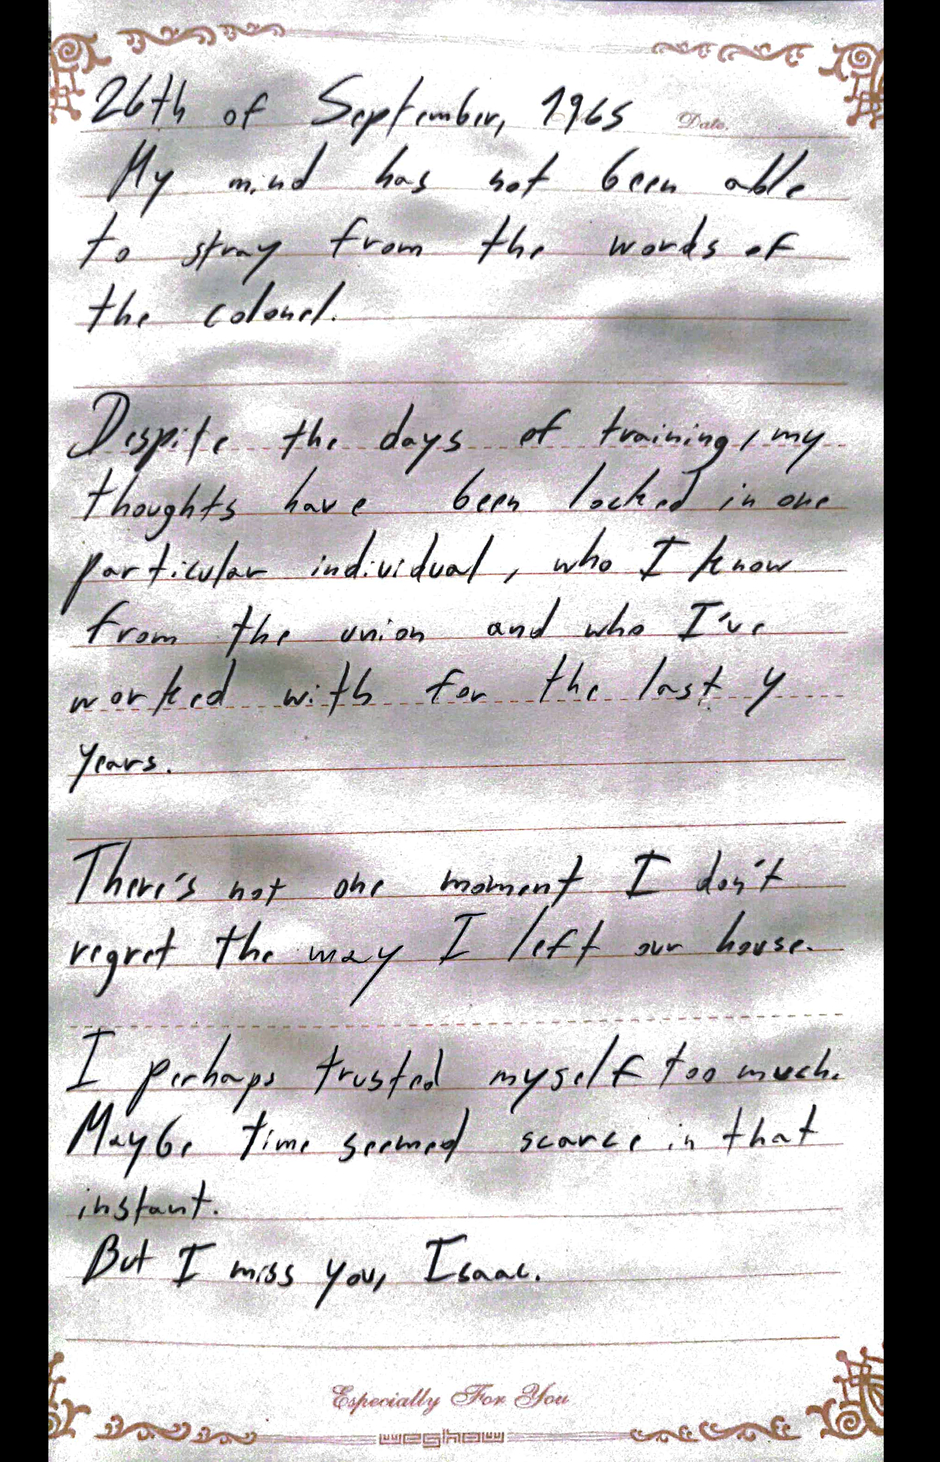 26th of September, 1965 Date.
My mind has not been able
to stray from the words of
the colonel.
Despite the days of training, my
thoughts have been locked in one
particular individual, who I know
from the union and who I've
worked with for the last y
years.
There's not one moment I don't
regret the way I left our house.
I perhaps trusted myself too much.
Maybe time seemed scarce in that
instant.
But I miss you, Isaac.
Especially For You